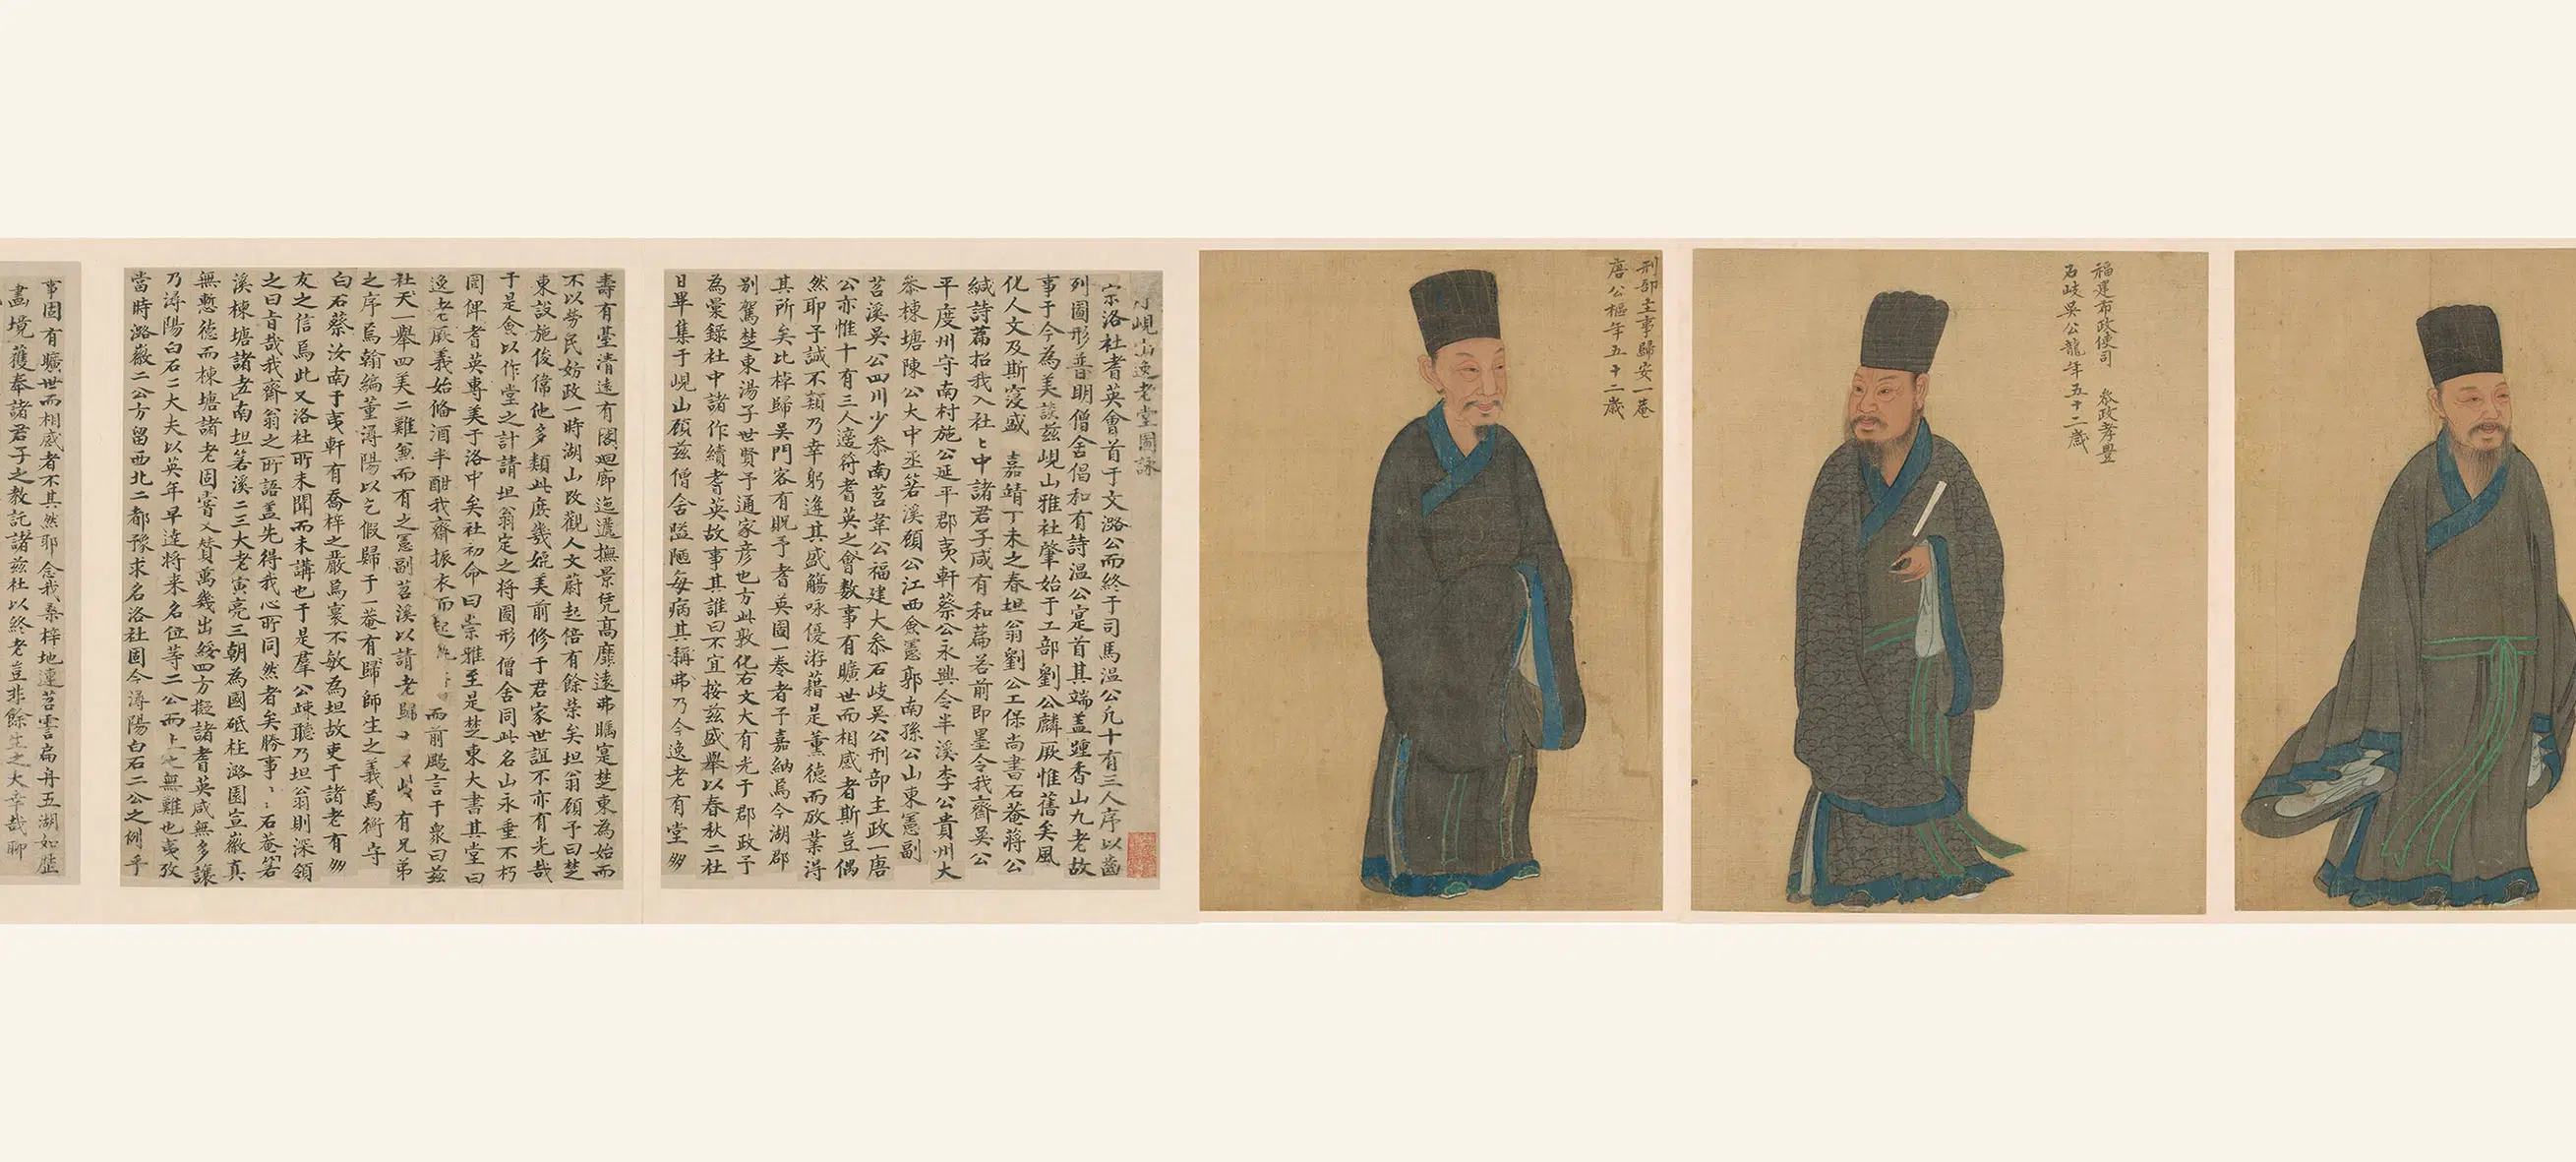 福建布政使司　叅政孝豊
石岐吳公龍年五十二歲
刑部主事歸安一菴
唐公樞年五十二歲
峴山逸老堂圖詠
宋洛社耆英會首于文潞公而終于司馬溫公凢十有三人序以齒
列圖形普明僧舍倡和有詩溫公寔首其端盖踵香山九老故
事于今為美談茲峴山雅社肇始于工部劉公麟厥惟舊矣風
化人文及斯寖盛　嘉靖丁未之春坦翁劉公工保尚書石菴蔣公
緘詩荐招我入社社中諸君子咸有和篇若前即墨令我齋吳公
平度州守南村施公延平郡守夷軒蔡公永興令半溪李公貴州大
叅棟塘陳公大中丞箬溪顧公江西僉憲郭南孫公山東憲副
苕溪吳公四川少叅南苕韋公福建大叅石岐吳公刑部主政一唐
公亦惟十有三人適符耆英之會數事有曠世而相感者斯豈偶
然耶予誠不類乃幸躬逢其盛觴咏優游藉是薰德而放業得
其所矣比棹歸吳門客有貺予耆英圖一卷者予嘉納焉今湖郡
別駕楚東湯子世賢予通家彦也方此敦化右文大有光于郡政予
為彙錄社中諸作續耆英故事其誰曰不宜按茲盛舉以春秋二社
日畢集于峴山顧茲僧舍隘陋每病其稱弗乃今逸老有堂眺
壽有臺清遠有閣迴廊迤邐撫景凭高靡遠弗矚寔楚東為始而
不以勞民妨政一時湖山改觀人文蔚起倍有餘榮矣坦翁顧予曰楚
東設施俊偉他多類此庶幾媲美前修于君家世誼不亦有光哉
于是僉以作堂之計請坦翁定之将圖形僧舍同此名山永垂不朽
罔俾耆英專美于洛中矣社初命曰崇雅至是楚東大書其堂曰
逸老厥義始僃酒半酣我齋振衣而起
而前颺言于衆曰茲
社天一舉四美二難兼而有之憲副苕溪以請老歸
有兄弟
之序焉翰編董潯陽以乞假歸于一菴有歸師生之義焉衛守
白石蔡汝南于夷軒有喬梓之嚴焉寔不敏為坦故吏于諸老有
友之信焉此又洛社所未聞而未講也于是羣公竦聽乃坦翁則深領
之曰旨哉我齋翁之所語盖先得我心所同然者矣勝事
石菴箬
溪棟塘諸老南坦箬溪二三大老寅亮三朝為國砥柱潞國宣徽真
無慙德而棟塘諸老固嘗又賛萬幾出綏四方擬諸耆英咸無多讓
乃潯陽白石二大夫以英年早達将来名位等二公而上之無難也夷攷
當時潞徽二公方留西北二都豫求名洛社圖今潯陽白石二公之例乎
事固有曠世而相感者不其然耶念我桑梓地連苕霅扁舟五湖如歷
畵境獲奉諸君子之教託諸茲社以終老豈非餘生之大幸哉聊